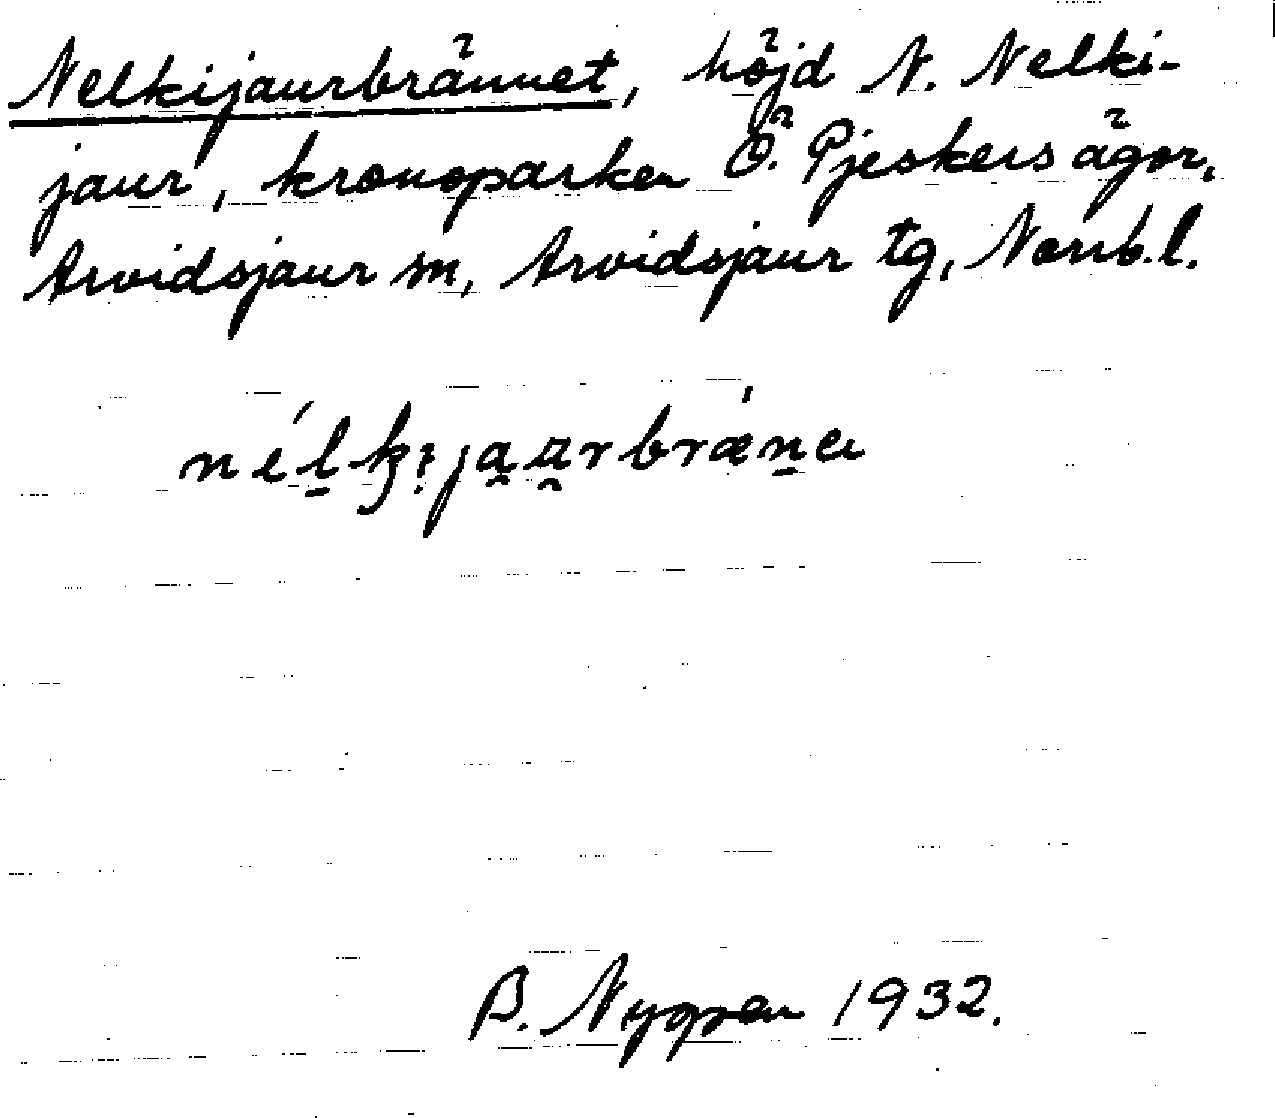 Nelkijaurbrännet, höjd N. Nelki-
jaur, kronoparken Ö. Pjeskers ägor,
Arvidsjaur sn, Arvidsjaur tg, Norrb. l.
B. Nygren 1932.